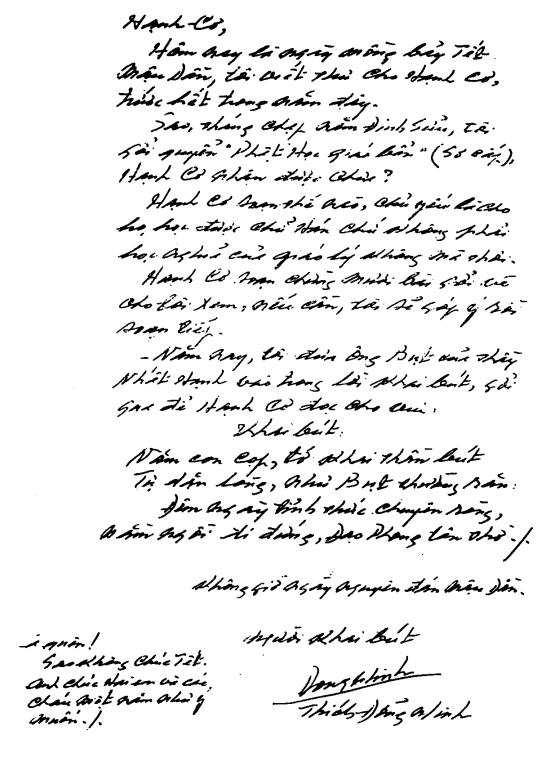 Hạnh Cơ,
Hôm nay là ngày mồng bảy Tết
Mậu Dần, tôi viết thư cho Hạnh Cơ,
trước hết trong năm đây.
Sao, tháng Chạp năm Đinh Sửu, tôi
gởi quyển "Phật Học giáo bản" (Sơ cấp),
Hạnh Cơ nhận được chưa?
Hạnh Cơ soạn thế nào, chủ yếu là cho
họ, học được chữ Hán chứ không phải
học nghĩa của giáo lý không mà thôi.
Hạnh Cơ soạn chừng mười bài gởi về
cho tôi xem, nếu cần, tôi sẽ góp ý rồi
soạn tiếp.
- Năm nay, tôi đưa ông Bụt của thầy
Nhất Hạnh vào trong lời khai bút, gởi
qua để Hạnh Cơ đọc cho vui:
Khai bút:
Năm con Cọp, tớ khai thần bút
Tự dặn lòng, như Bụt thường răn:
Đêm ngày tỉnh thức chuyên răng,
Nằm ngồi đi đứng, Đạo Phong tên thờ./.
Không giờ ngày nguyên đán Mậu Dần.
Người khai bút
Thích Đổng Minh
à quên!
Sao không chúc Tết.
Anh chúc Hai em và các
cháu một năm như ý
muốn./.